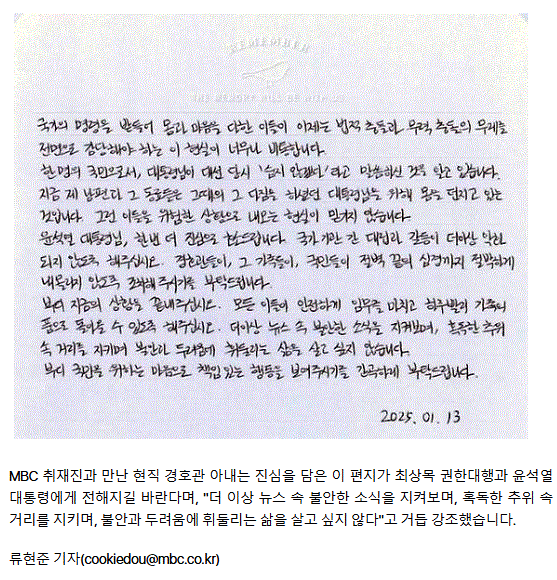 REMEMBER
국가의 명령을 받들어 몸과 마음을 다한 이들이 이제는 법적 충돌과 무력 충돌의 무게를
전면으로 감당해야 하는 이 현실이 너무나 비통합니다.
한 명의 국민으로서, 대통령님이 대선 당시 '숨지 않겠다'라고 말씀하신 것을 알고 있습니다.
지금 제 남편과 그 동료들은 그때의 그 다짐을 하셨던 대통령님을 위해 몸을 던지고 있는
것입니다. 그런 이들을 위험한 상황으로 내모는 현실이 믿기지 않습니다.
윤석열 대통령님, 한번 더 진심으로 호소드립니다. 국가 기관 간 대립과 갈등이 더이상 악화
되지 않도록 해주십시오. 경호관들이, 그 가족들이, 국민들이 절벽 끝의 심경까지 절박하게
내몰리지 않도록 조치해 주시기를 부탁드립니다.
부디 지금의 상황을 끝내주십시오. 모든 이들이 안전하게 임무를 마치고 하루빨리 가족의
품으로 돌아올 수 있도록 해주십시오. 더이상 뉴스 속 불안한 소식을 지켜보며, 혹독한 추위
속 거리를 지키며 불안과 두려움에 휘둘리는 삶을 살고 싶지 않습니다.
부디 국민을 위하는 마음으로 책임 있는 행동을 보여주시기를 간곡하게 부탁드립니다.
2025. 01. 13
MBC 취재진과 만난 현직 경호관 아내는 진심을 담은 이 편지가 최상목 권한대행과 윤석열
대통령에게 전해지길 바란다며, "더 이상 뉴스 속 불안한 소식을 지켜보며, 혹독한 추위 속
거리를 지키며, 불안과 두려움에 휘둘리는 삶을 살고 싶지 않다"고 거듭 강조했습니다.
류현준 기자(cookiedou@mbc.co.kr)